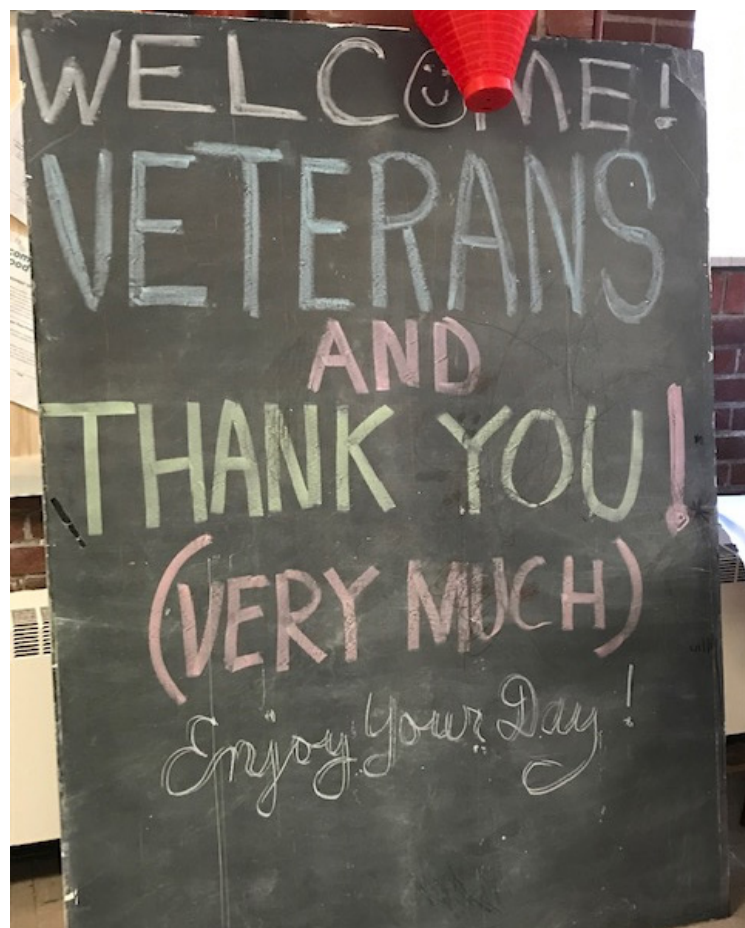 WELCOME!
VETERANS
AND
THANK YOU!
(VERY MUCH)
Enjoy Your Day!